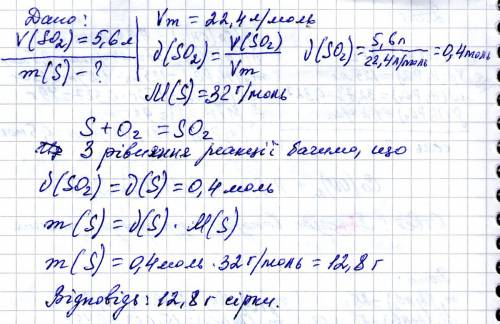 Дано:
V(SO₂) = 5,6 л
m(S) - ?
Vm = 22,4 л/моль
ϑ(SO₂) = V(SO₂)/Vm
ϑ(SO₂) = 5,6 л/22,4 л/моль = 0,4 моль
M(S) = 32 г/моль
S + O₂ = SO₂
З рівняння реакції бачимо, що
ϑ(SO₂) = ϑ(S) = 0,4 моль
m(S) = ϑ(S) · M(S)
m(S) = 0,4 моль · 32 г/моль = 12,8 г
Відповідь: 12,8 г сірки.